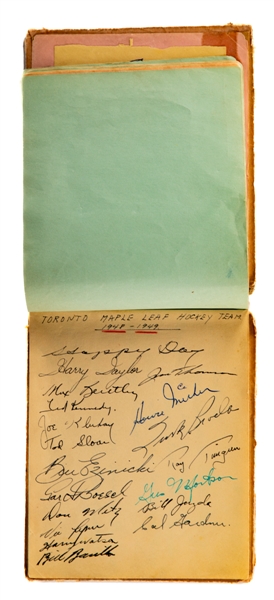 TORONTO MAPLE LEAF HOCKEY TEAM
1948-1949
Happy Day
Harry Taylor Jim Thomson
Max Bentley
Ted Kennedy. Howie Meeker
Joe Klukay
Tod Sloan Turk Broda
Bill Ezinicki Ray Timgren
Garth Boesch Gus Mortson
Don Metz Bill Juzda
Vic Lynn Cal Gardner
Harry Watson
Bill Barilko